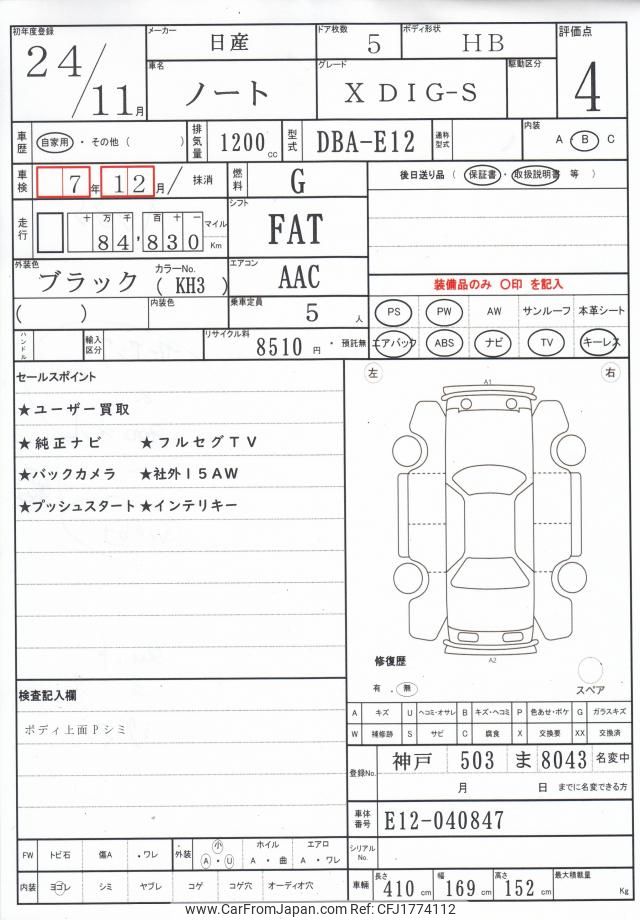 初年度登録 メーカー 日産 ドア枚数 5 ボディ形状 HB 評価点
24/11月 車名 ノート グレード X DIG-S 駆動区分 4
車歴 自家用 ・ その他 ( ) 排気量 1200 cc 型式 DBA-E12 通称型式 内装 A ・ B ・ C
車検 7年 12月 / 抹消 燃料 G 後日送り品 ( 保証書 ・ 取扱説明書 等 )
走行 十万千百十一 84,830 マイル Km シフト FAT
外装色 ブラック カラーNo. ( KH3 ) エアコン AAC 装備品のみ 〇印 を記入
( ) 内装色 乗車定員 5 人 PS PW AW サンルーフ 本革シート
ハンドル 輸入区分 リサイクル料 8510 円 ・ 預託無 エアバック ABS ナビ TV キーレス
セールスポイント 左 右
★ユーザー買取 A1
★純正ナビ ★フルセグTV
★バックカメラ ★社外15AW
★プッシュスタート★インテリキー
修復歴 A2
有 . 無 スペア
検査記入欄
ボディ上面Pシミ
A キズ U ヘコミ・オサレ B キズ・ヘコミ P 色あせ・ボケ G ガラスキズ
W 補修跡 S サビ C 腐食 X 交換要 XX 交換済
登録No. 神戸 503 ま 8043 名変中
月 日 までに名変できる方
車体番号 E12-040847
FW トビ石 傷A ・ワレ 外装 小 A ・ U ホイル A ・ 曲 エアロ A ・ ワレ シリアルNo.
内装 ヨゴレ シミ ヤブレ コゲ コゲ穴 オーディオ穴 車輛 長さ 410 cm 幅 169 cm 高さ 152 cm 最大積載量 Kg
www.CarFromJapan.com Ref: CFJ1774112